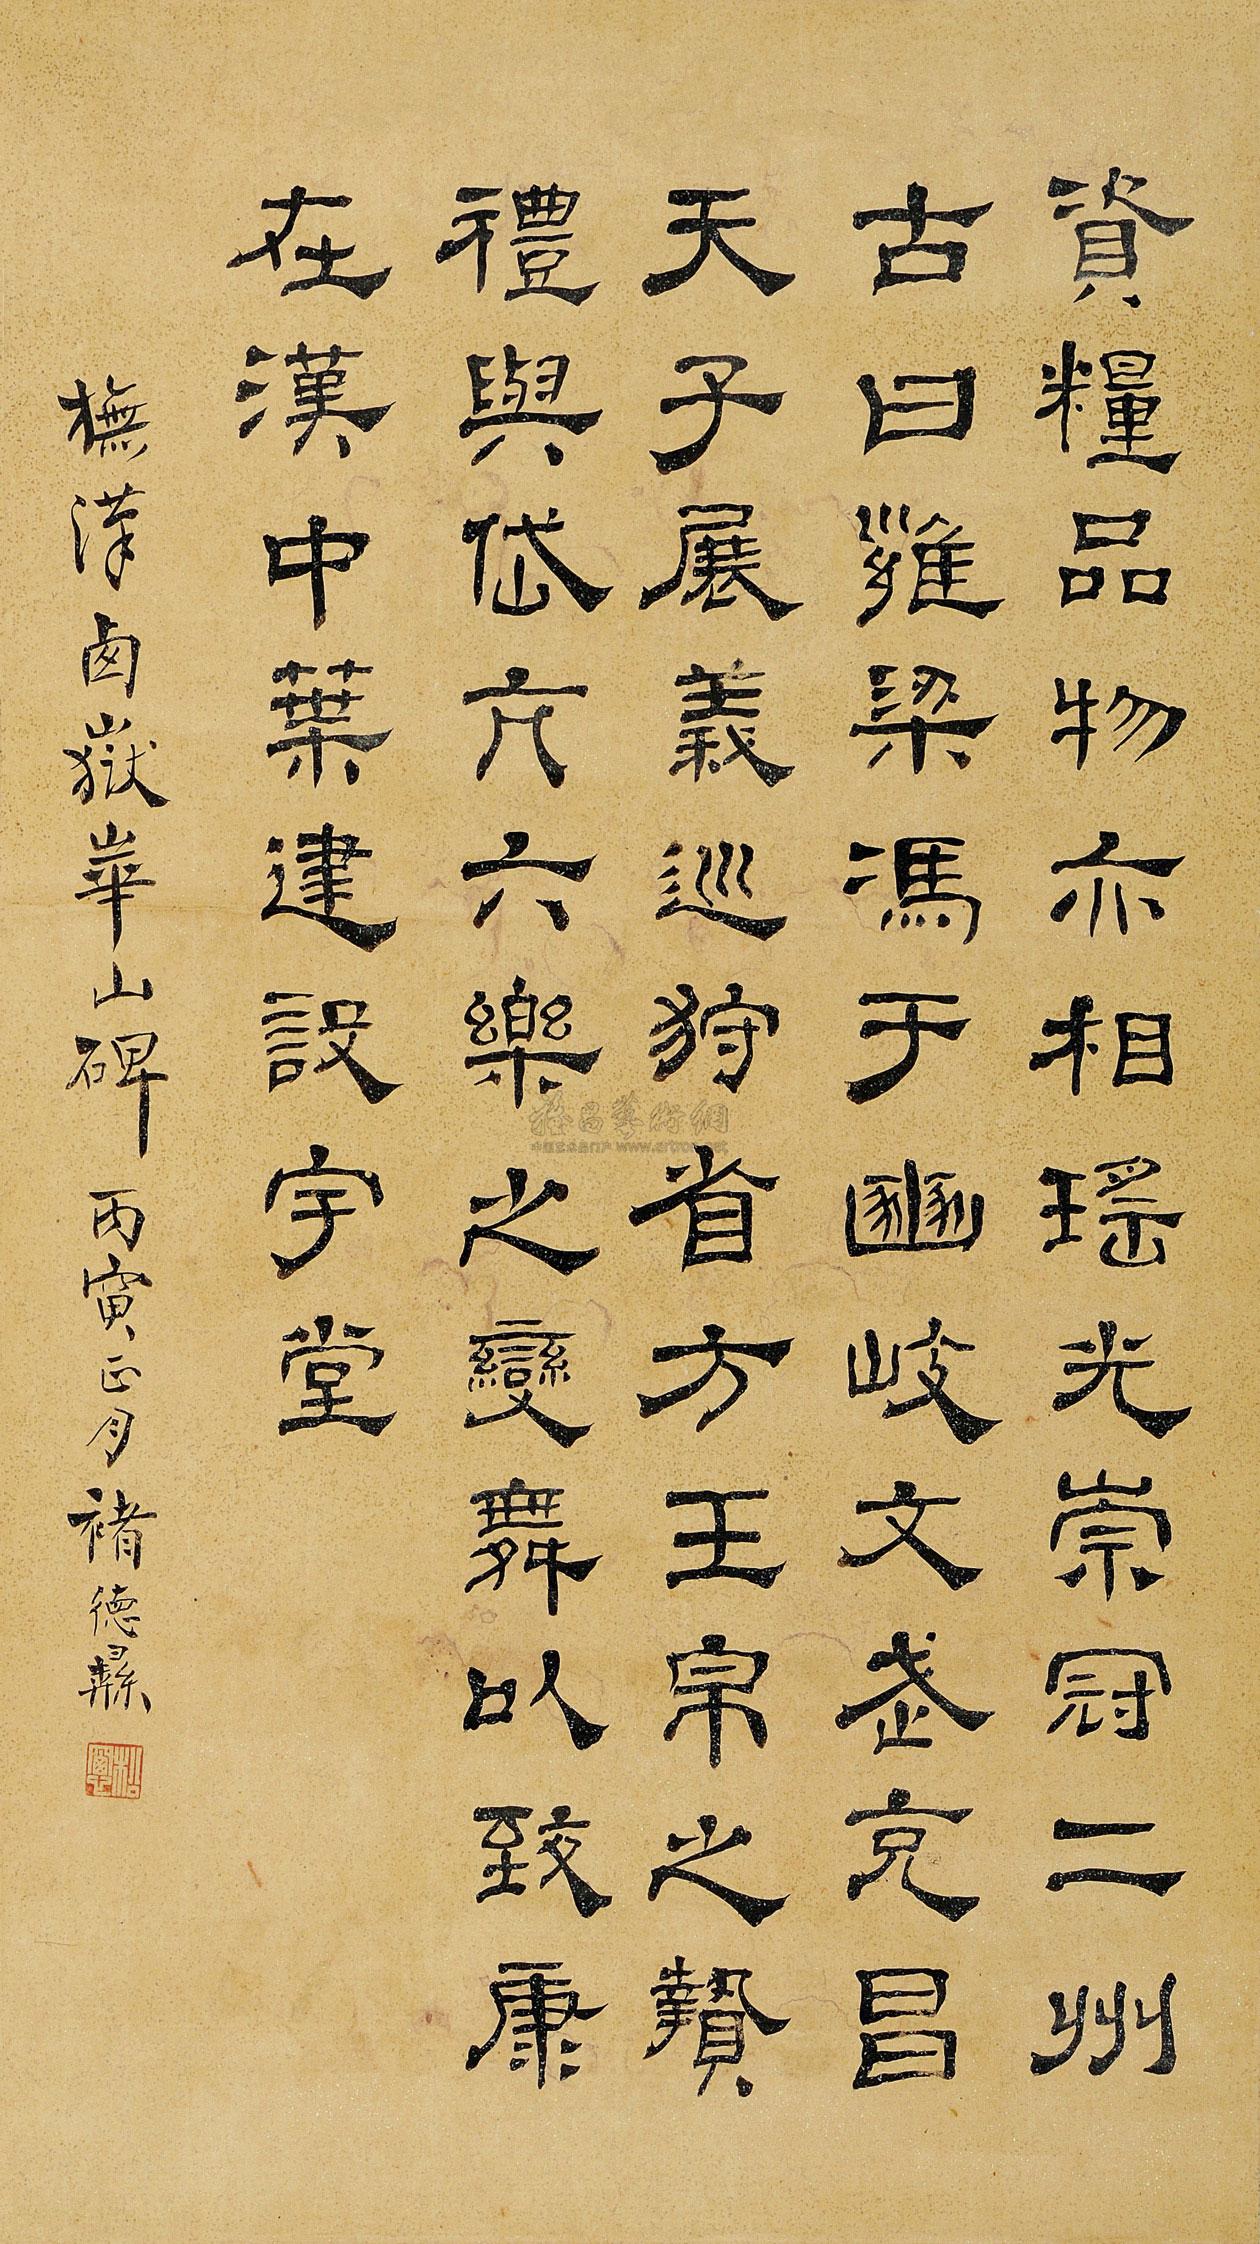 資糧品物亦相瑶光崇冠二州
古曰雍梁馮于豳岐文武克昌
天子展義巡狩省方王帛之贄
禮與岱亢六樂之變舞以致康
在漢中葉建設宇堂
橅漢西嶽華山碑 丙寅正月褚德彝
松窗
www.artron.net